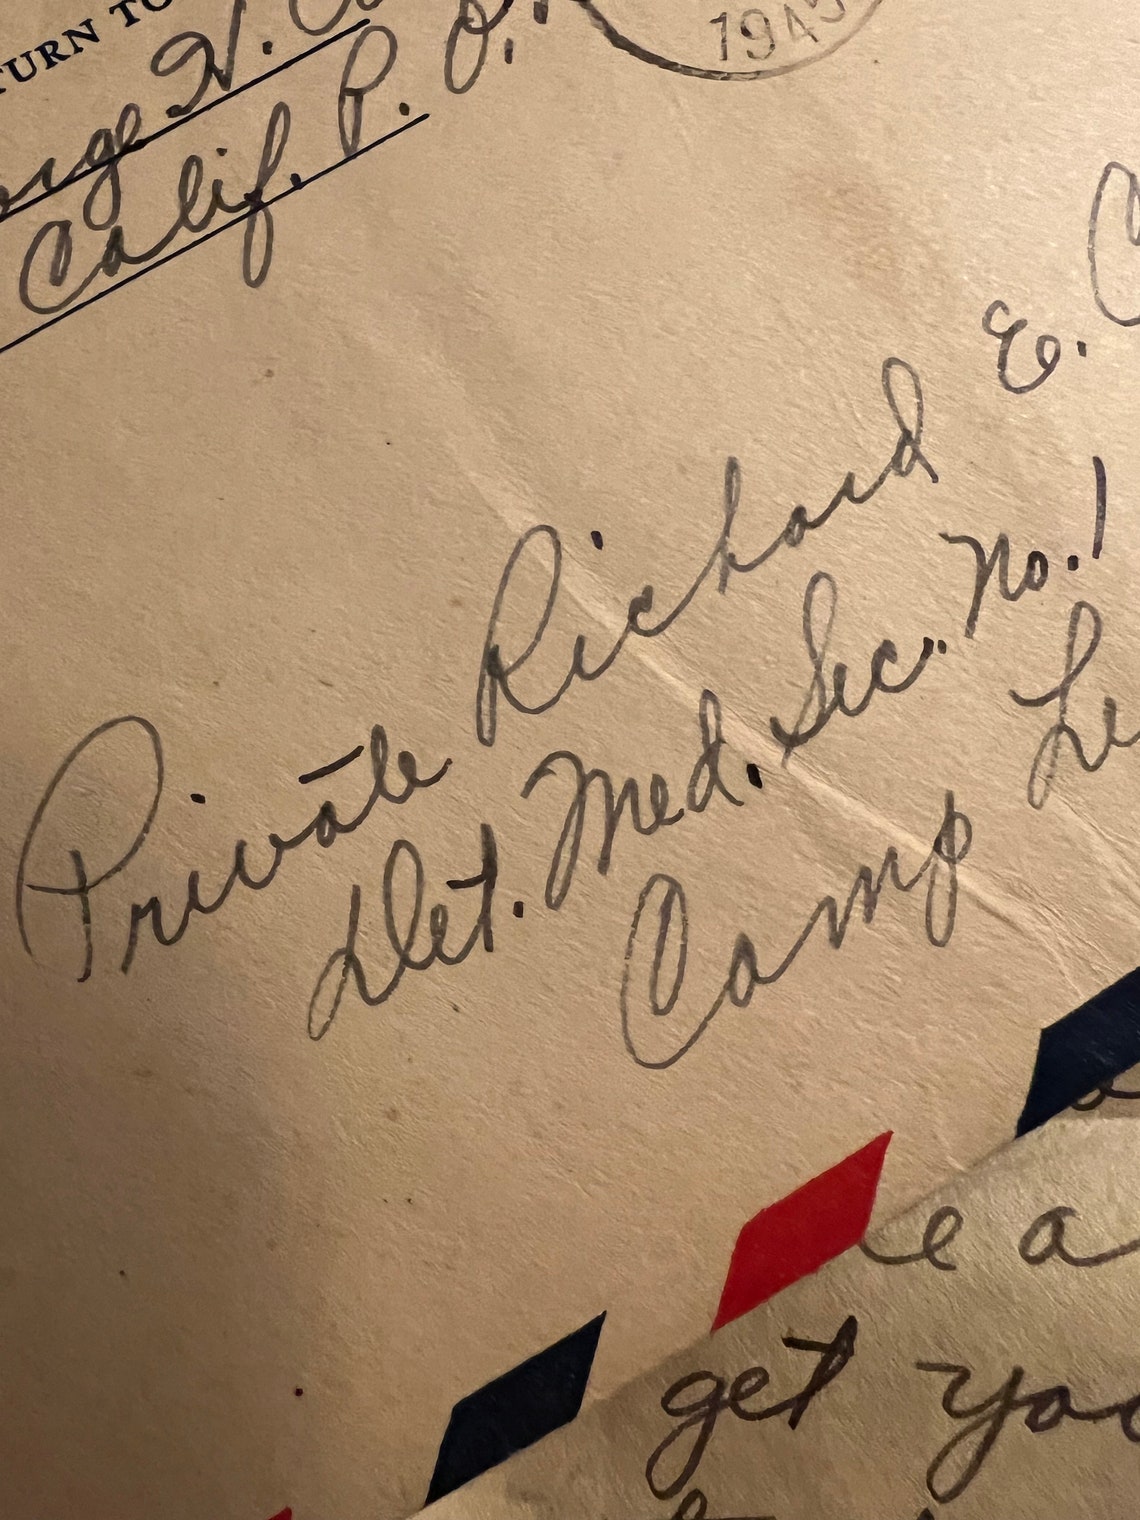 TURN TO
George N. C
Calif. P. O.
1945
Private Richard E. C
Det. Med. Sec. No. 1
Camp Le
e a
get you